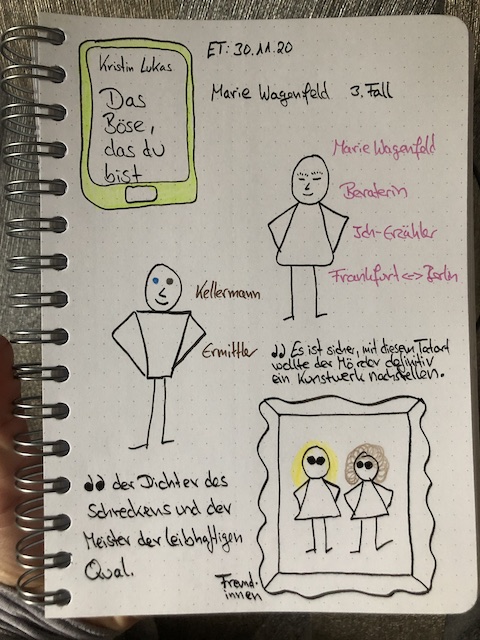 Kristin Lukas
Das
Böse,
das du
bist
ET: 30.11.20
Marie Wagenfeld 3. Fall
Marie Wagenfeld
Beraterin
Ich-Erzähler
Frankfurt <-> Berlin
Kellermann
Ermittler
„ Es ist sicher, mit diesem Tatort
wollte der Mörder definitiv
ein Kunstwerk nachstellen.
„ der Dichter des
Schreckens und der
Meister der leibhaftigen
Qual.
Freund-
innen